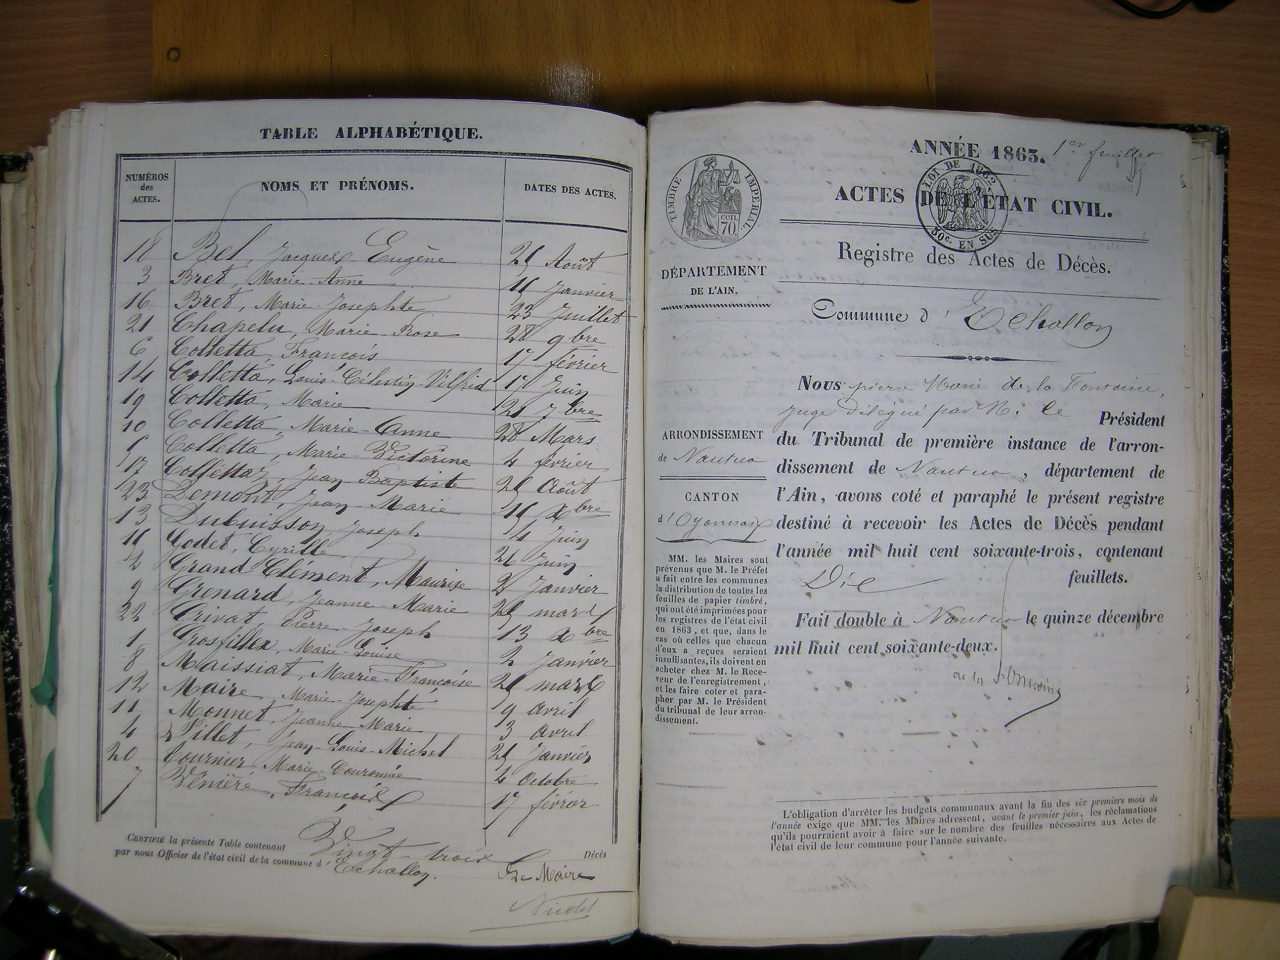 TABLE ALPHABÉTIQUE.
NUMÉROS des ACTES.
NOMS ET PRÉNOMS.
DATES DES ACTES.
18 Bel Jacques Eugène 25 Août
3 Bret, Marie Anne 16 Janvier
16 Bret, Marie Josephte 23 Juillet
21 Chapelu, Marie Rose 28 9bre
6 Colletta, François 17 février
14 Colletta, Louis Célestin Vilfrid 17 Juin
19 Colletta, Marie 21 7bre
10 Colletta, Marie Anne 28 Mars
Colletta, Marie Victorine 4 février
17 Collettaz, Jean Baptiste Août
23 Demont, Jean Marie 16 Xbre
13 Dubuisson Joseph Juin
Godet, Cyrille Juin
2 Grand Clément, Maurize Janvier
9 Grenard, Jeanne Marie mars
22 Grivat, Pierre Joseph 13 Xbre
1 Grosfillex, Marie Louise 2 Janvier
8 Maissiat, Marie Françoise mars
12 Maire, Marie Josephte 9 Avril
11 Monnet, Jeanne Marie 3 Avril
4 Pillet, Jean Louis Michel Janvier
20 Tournier Marie 4 Octobre
7 François 17 février
CERTIFIÉ la présente Table contenant Vingt-trois Décès
par nous Officier de l'état civil de la commune d'Echallon.
Le Maire
ANNÉE 1863. 1er feuillet
TIMBRE IMPÉRIAL
CEN. 70
LOI DE 1862
50c. EN SUS
ACTES DE L'ÉTAT CIVIL.
Registre des Actes de Décès.
DÉPARTEMENT
DE L'AIN.
Commune d'Echallon
ARRONDISSEMENT
de Nantua
CANTON
d'Oyonnax
MM. les Maires sont
prévenus que M. le Préfet
a fait entre les communes
la distribution de toutes les
feuilles de papier timbré,
qui ont été imprimées pour
les registres de l'état civil
en 1863, et que, dans le
cas où celles que chacun
d'eux a reçues seraient
insuffisantes, ils doivent en
acheter chez M. le Rece-
veur de l'enregistrement,
et les faire coter et para-
pher par M. le Président
du tribunal de leur arron-
dissement.
Nous pierre de la Fontaine,
juge délégué par M. le Président
du Tribunal de première instance de l'arron-
dissement de Nantua, département de
l'Ain, avons coté et paraphé le présent registre
destiné à recevoir les Actes de Décès pendant
l'année mil huit cent soixante-trois, contenant
Dix feuillets.
Fait double à Nantua le quinze décembre
mil huit cent soixante-deux.
de la
L'obligation d'arrêter les budgets communaux avant la fin des six premiers mois de
l'année exige que MM. les Maires adressent, avant le premier juin, les réclamations
qu'ils pourraient avoir à faire sur le nombre des feuilles nécessaires aux Actes de
l'état civil de leur commune pour l'année suivante.